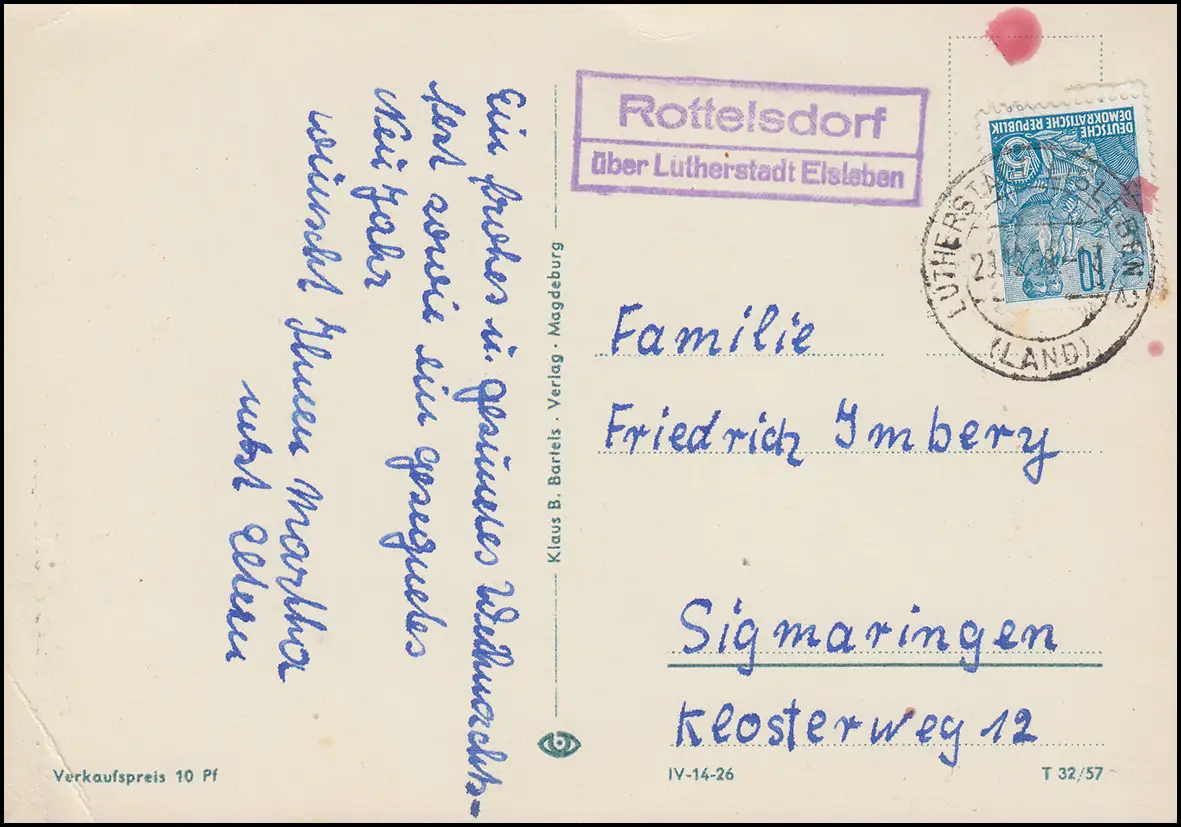 Ein frohes u. gesundes Weihnachts-
fest sowie ein gesegnetes
Neu Jahr
wünscht Ihnen Martha
nebst Eltern
Verkaufspreis 10 Pf
Klaus B. Bartels · Verlag · Magdeburg
Rottelsdorf
über Lutherstadt Eisleben
DEUTSCHE
DEMOKRATISCHE REPUBLIK
5
10
LUTHERSTADT EISLEBEN 2
(LAND)
Familie
Friedrich Imbery
Sigmaringen
Klosterweg 12
IV-14-26
T 32/57